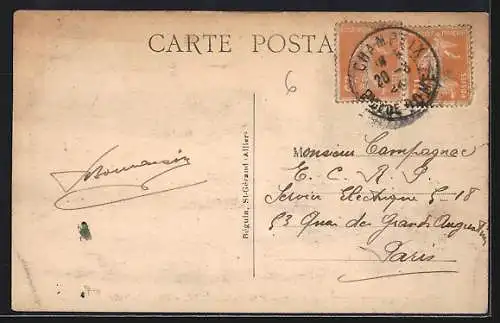 CARTE POSTA
CHAMPEIX
20 -8
PUY DE DOME
6
Béguin, St-Gérand (Allier)
Monsieur Campagnac
E. C. A. S
Service Electrique 5-18
53 Quai des Grands Augustins
Paris